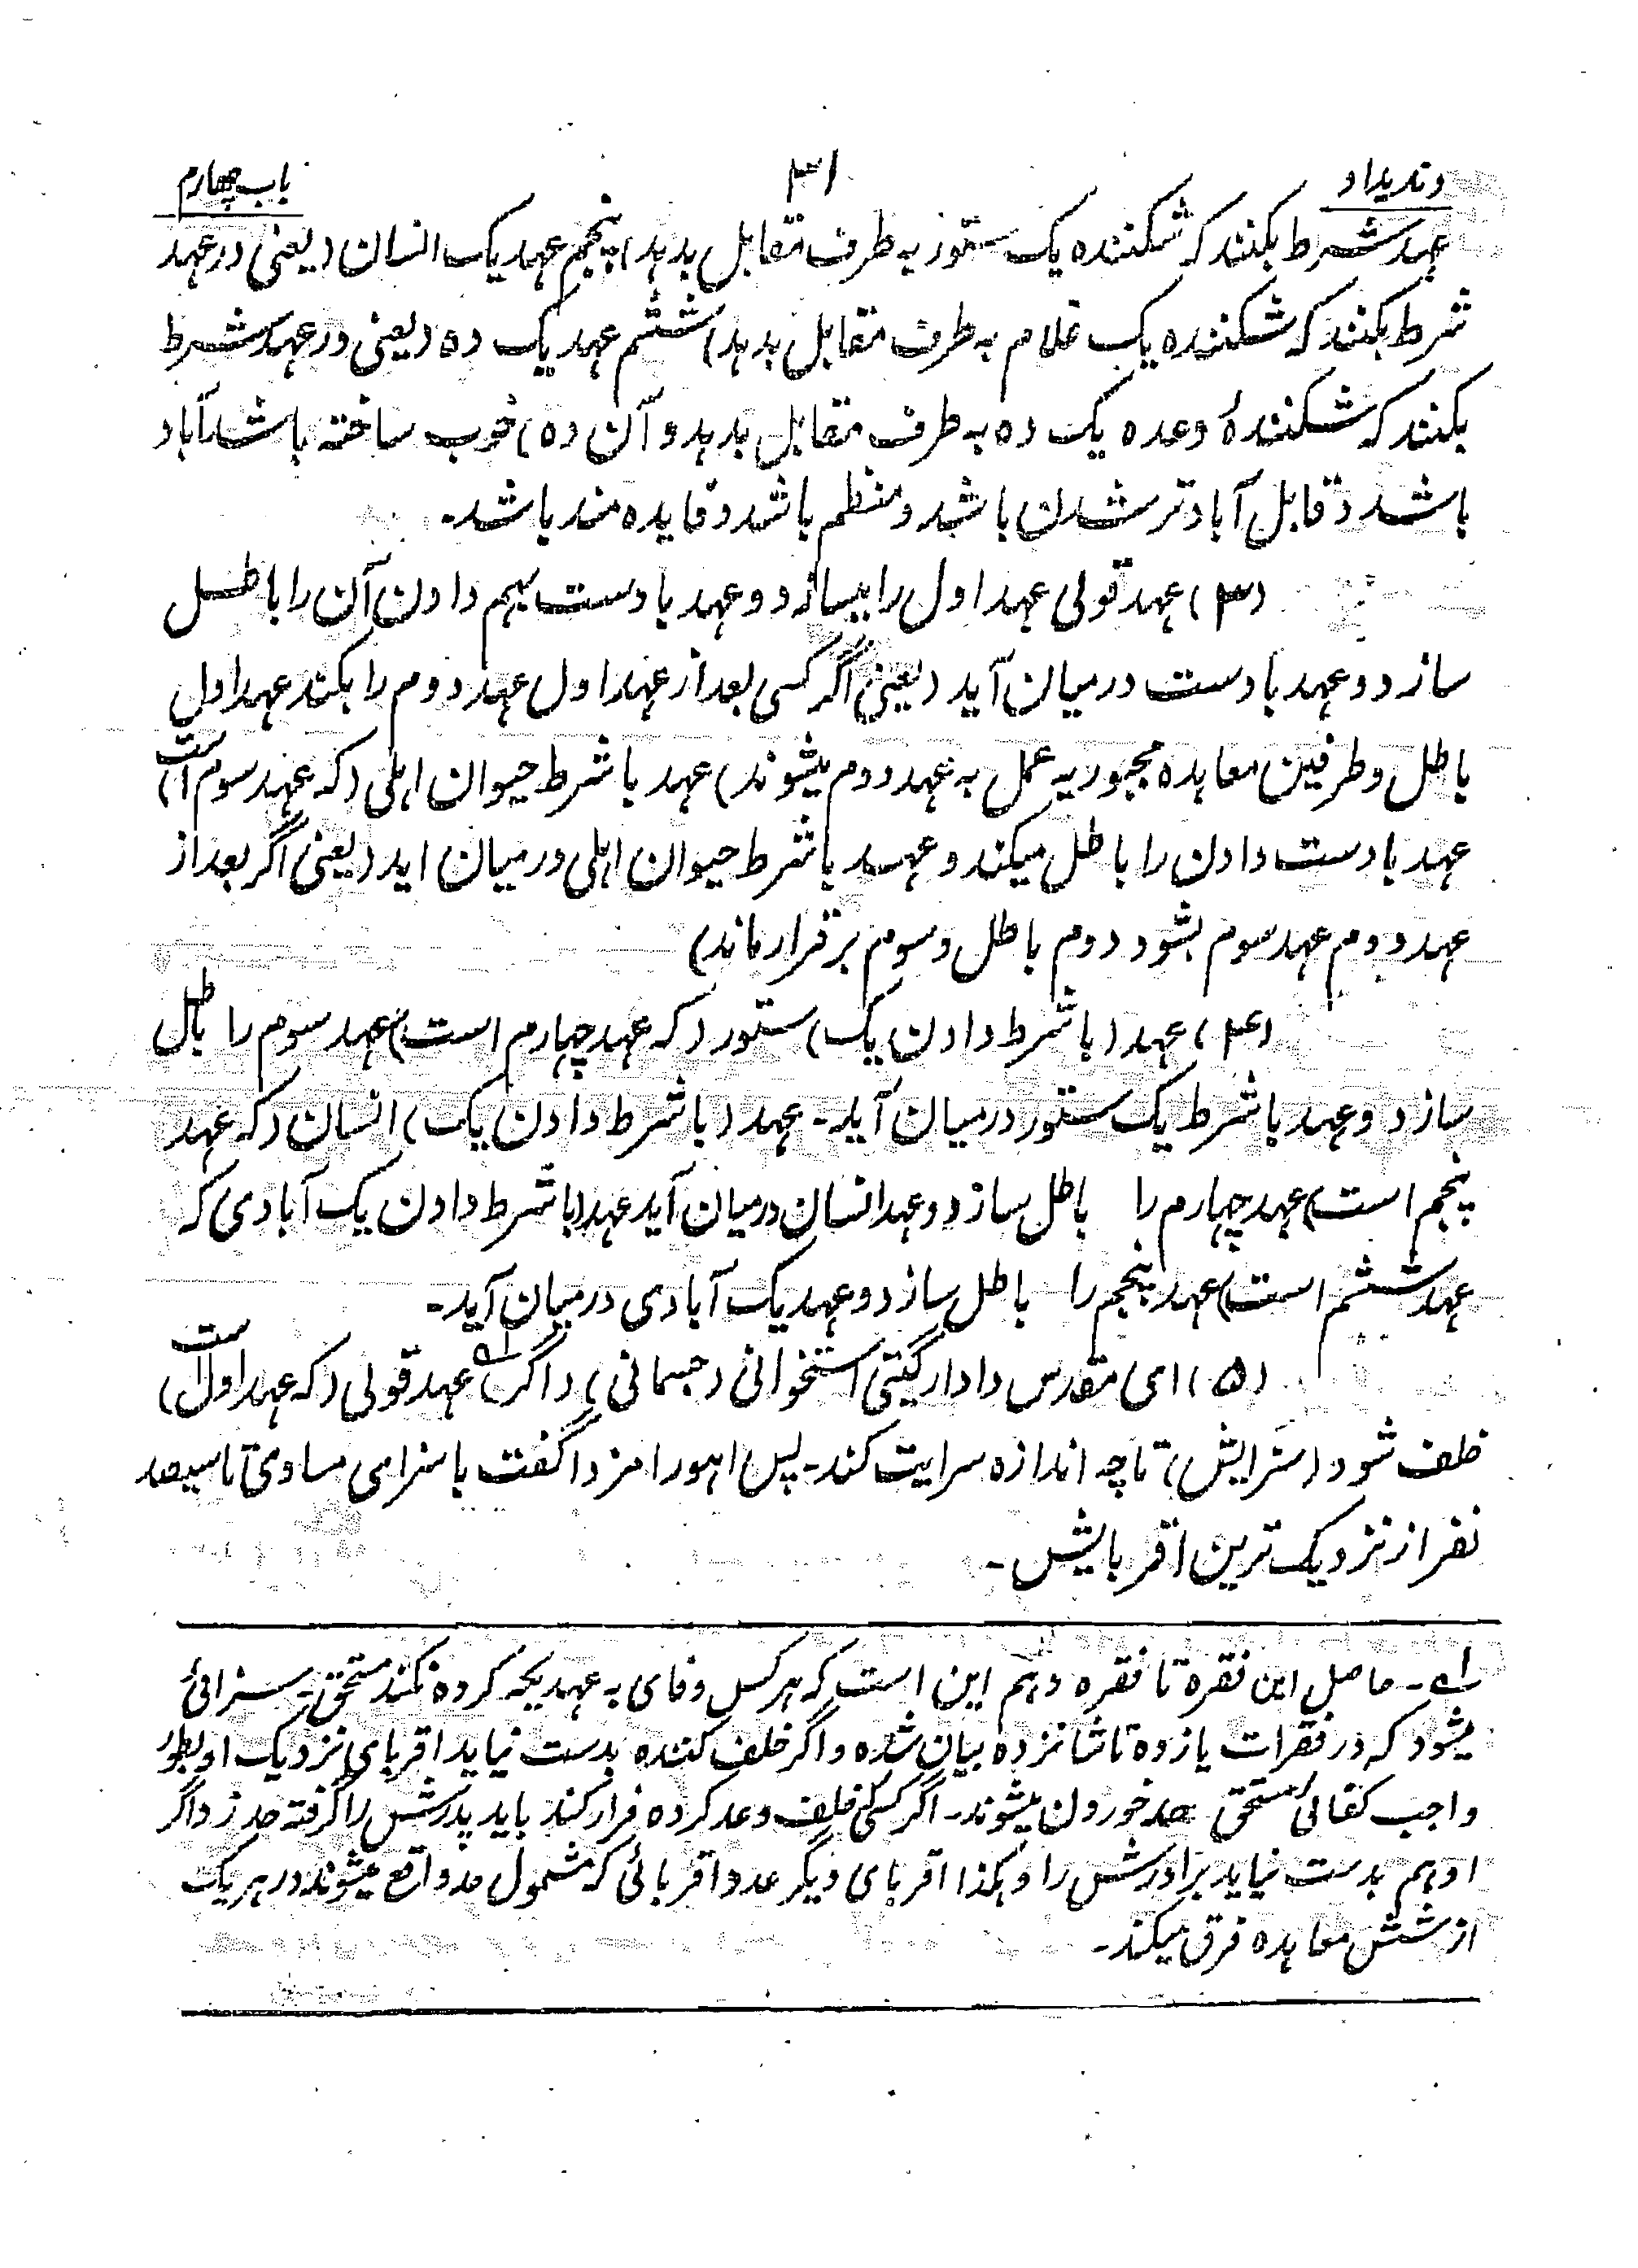 وندیداد
۳۱
باب چهارم
عهد شرط بکنند که شکننده یک ستور به طرف مقابل بدهد) پنجم عهد یک انسان (یعنی در عهد
شرط بکنند که شکننده یک غلام به طرف مقابل بدهد) ششم عهد یک ده (یعنی در عهد شرط
بکنند که شکنندهٔ وعده یک ده به طرف مقابل بدهد و آن ده) خوب ساخته باشد آباد
باشد و قابل آباد تر شدن باشد و منظم باشد و فایده مند باشد۔
(۳) عهد قولی عهد اول را بیسازد و عهد با دست بهم دادن آن را باطل
سازد و عهد با دست درمیان آید (یعنی اگر کسی بعد از عهد اول عهد دوم را بکند عهد اول
باطل و طرفین معاهده مجبور به عمل به عهد دوم میشوند) عهد با شرط حیوان اهلی (که عهد سوم است)
عهد با دست دادن را باطل میکند و عهد با شرط حیوان اهلی درمیان اید (یعنی اگر بعد از
عهد دوم عهد سوم بشود دوم باطل و سوم برقرار ماند)
(۴) عهد (با شرط دادن یک) ستور (که عهد چهارم است) عهد سوم را باطل
سازد و عهد با شرط یک ستور درمیان آید۔ عهد (با شرط دادن یک) انسان (که عهد
پنجم است) عهد چهارم را باطل سازد و عهد انسان درمیان آید عهد (با شرط دادن یک آبادی که
عهد ششم است) عهد پنجم را باطل سازد و عهد یک آبادی درمیان آید۔
(۵) ای مقدس دادار گیتی استخوانی (جسمانی) (اگر) ۱ه عهد قولی (که عهد اول است)
خلف شود (سزایش) تا چه اندازه سرایت کند۔ پس اهورا مزدا گفت با سزای مساوی تا سیصد
نفر از نزدیک ترین اقربایش۔
۱ه۔ حاصل این فقره تا فقره دهم این است که هر کس وفای به عهدیکه کرده نکند مستحق سزائی
میشود که در فقرات یازده تا شانزده بیان شده و اگر خلف کننده بدست نیاید اقربای نزدیک او بطور
واجب کفائی مستحق حد خوردن میشوند۔ اگر کسی خلف وعد کرده فرار کند باید پدرش را گرفته حد زد و اگر
او هم بدست نیاید برادرش را و هکذا اقربای دیگر عدد اقربائی که مشمول حد واقع میشوند در هر یک
از شش معاهده فرق میکند۔